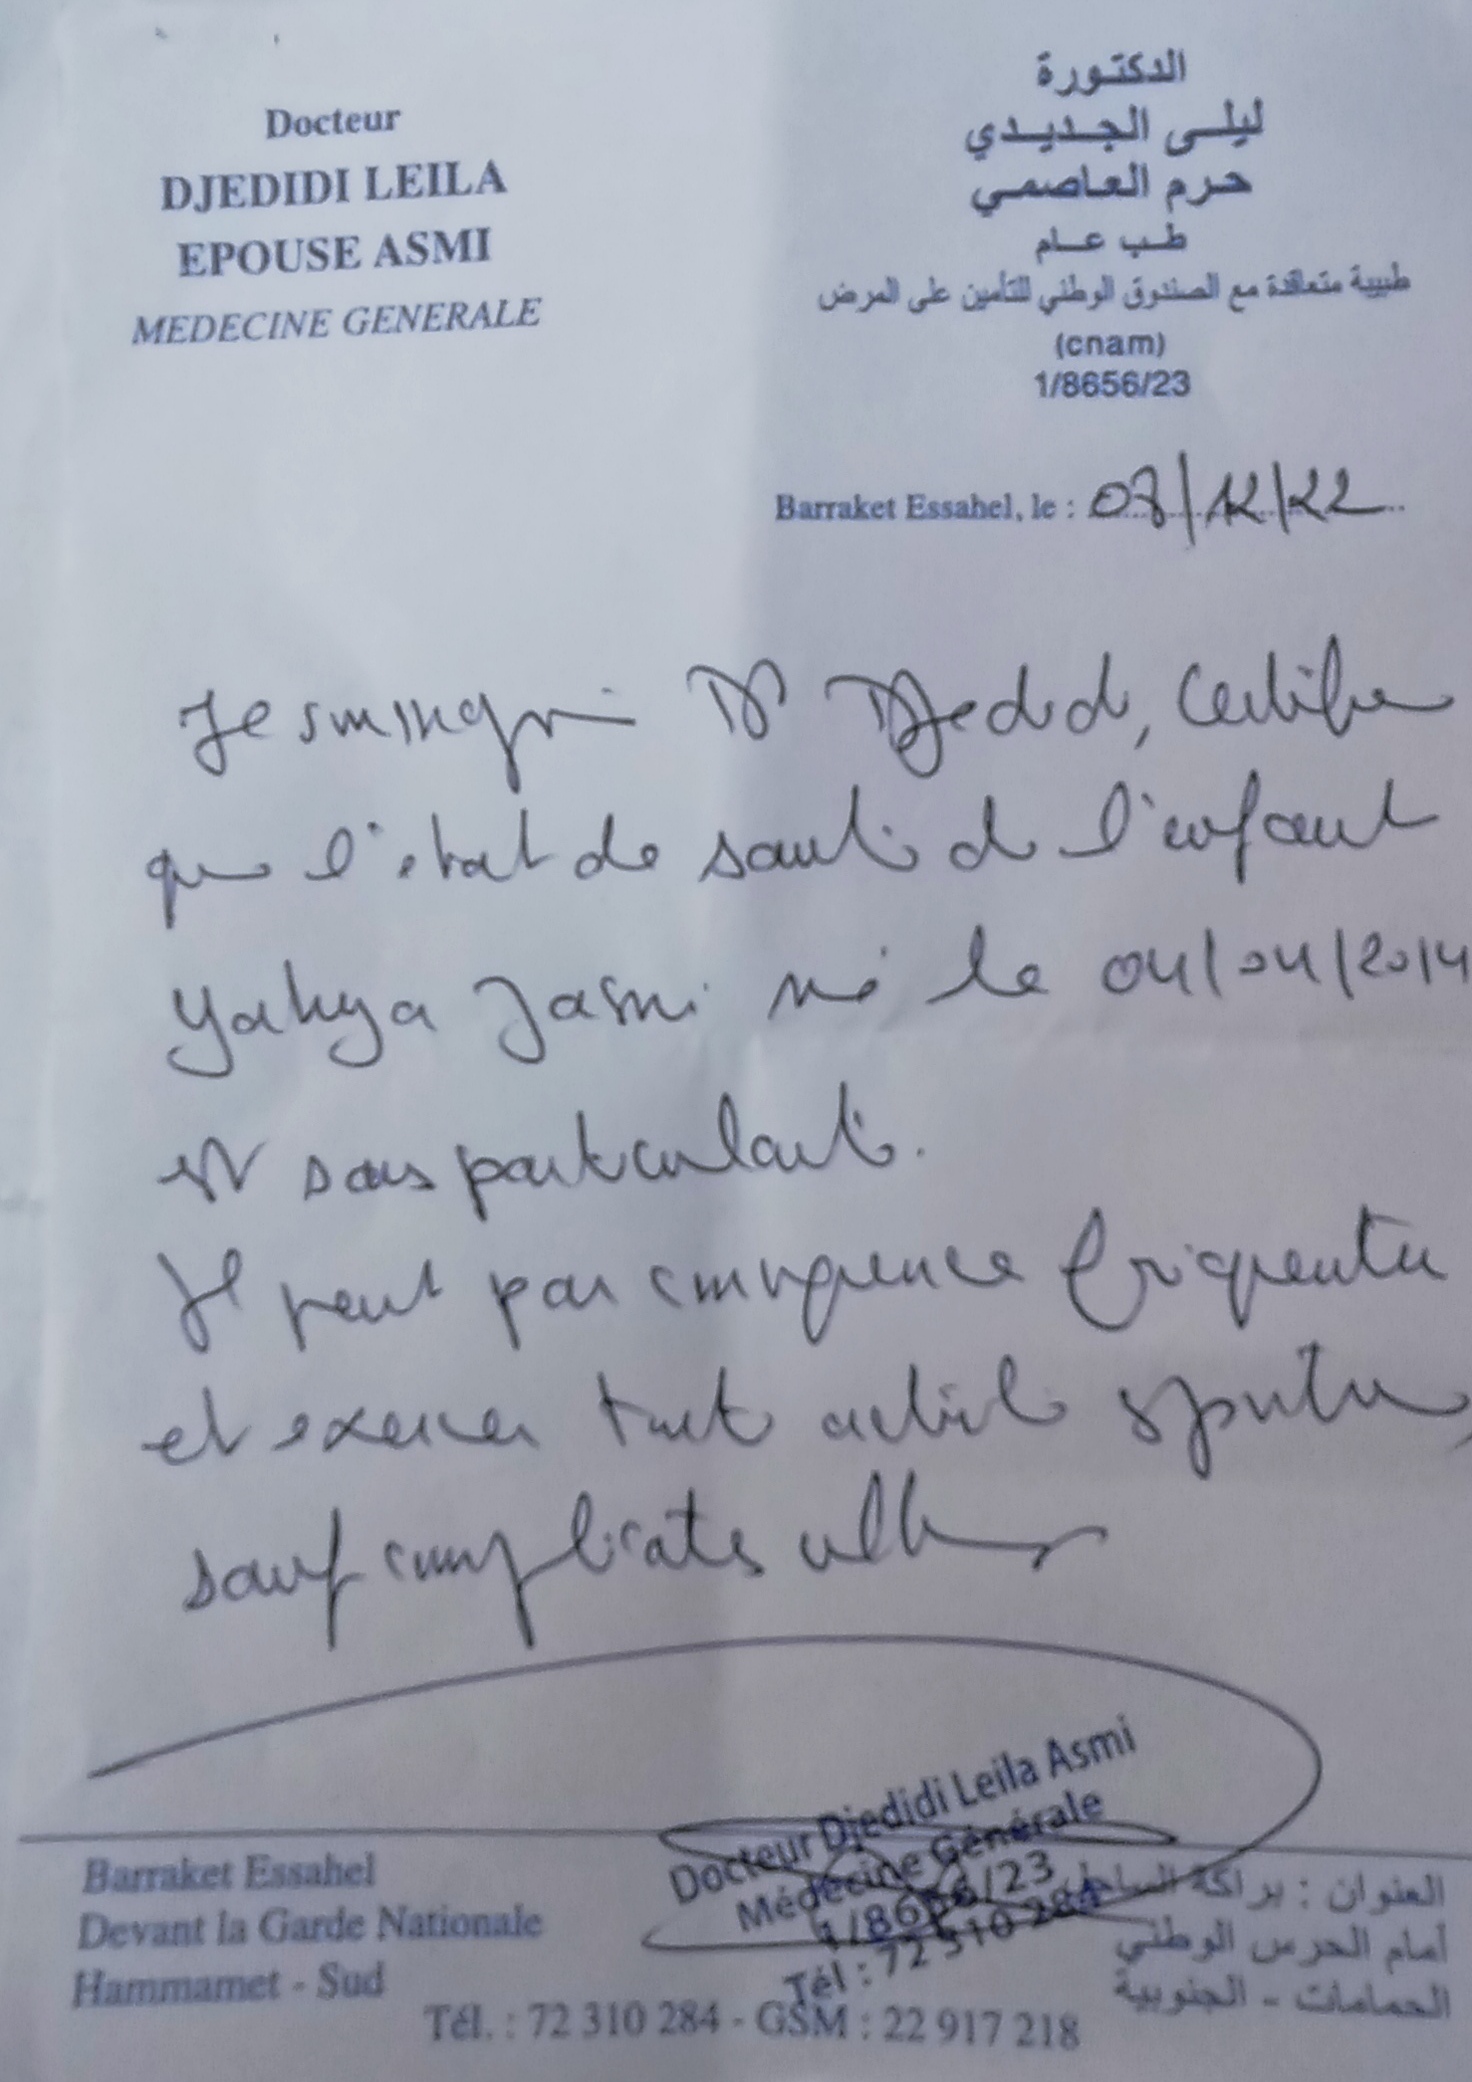 Docteur
DJEDIDI LEILA
EPOUSE ASMI
MEDECINE GENERALE
الدكتورة
ليلى الجديدي
حرم العاصمي
طب عام
طبيبة متعاقدة مع الصندوق الوطني للتأمين على المرض
(cnam)
1/8656/23
Barraket Essahel, le : 08/12/22
Je soussigné Dr Djedidi, certifie
que l'état de santé de l'enfant
Yahya Jasmi né le 04/04/2014
est sans particularité.
Il peut par conséquence fréquenter
et exercer toute activité sportive,
sauf complications
Docteur Djedidi Leila Asmi
Médecine Générale
1/8656/23
Tél : 72 310 284
Barraket Essahel
Devant la Garde Nationale
Hammamet - Sud
العنوان : براكة الساحل
أمام الحرس الوطني
الحمامات - الجنوبية
Tél. : 72 310 284 - GSM : 22 917 218